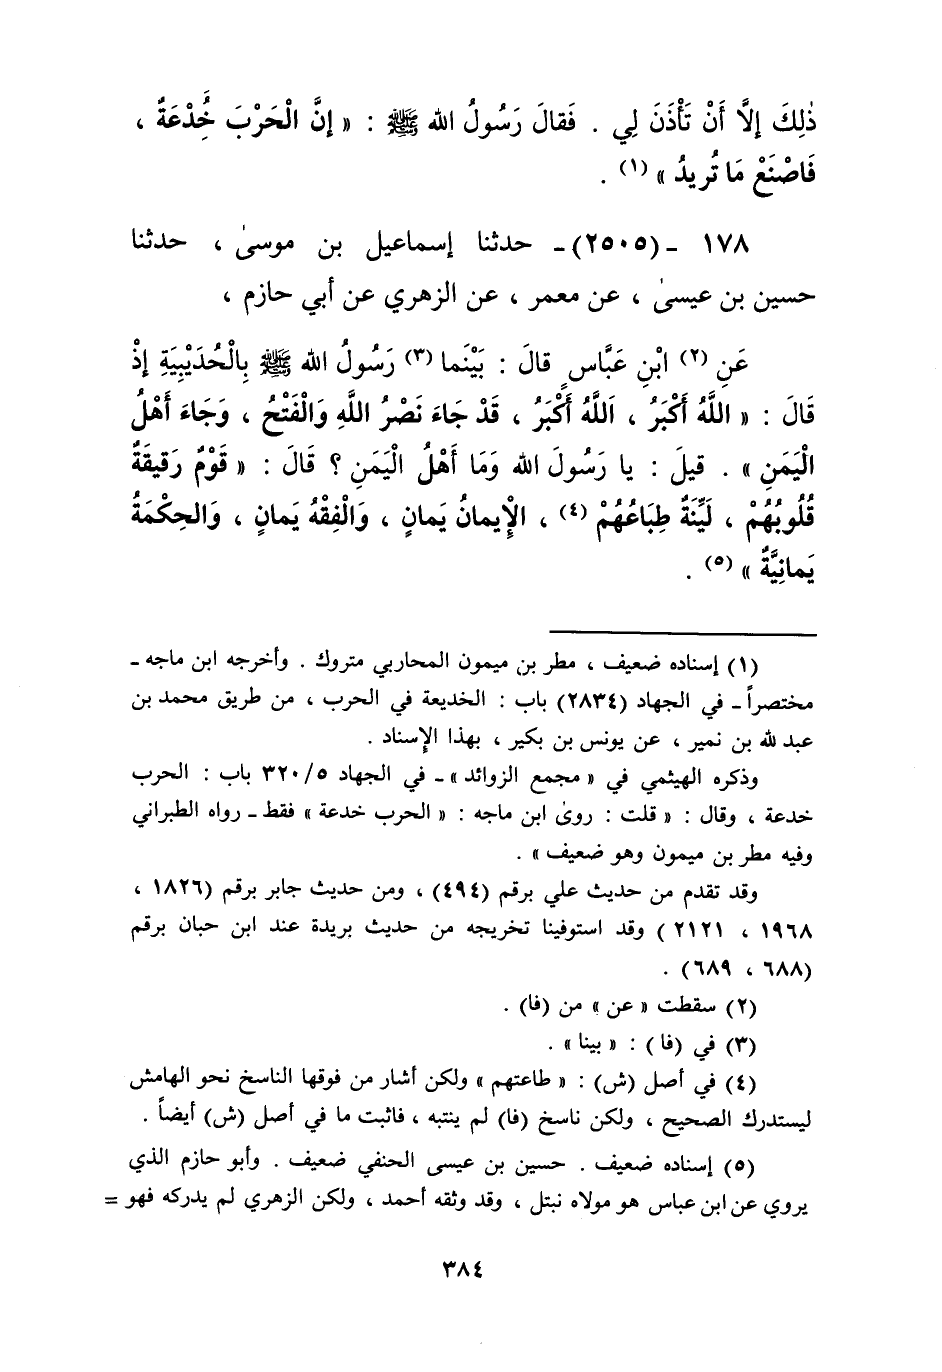 ذٰلِكَ إِلَّا أَنْ تَأْذَنَ لِي . فَقَالَ رَسُولُ الله ﷺ : « إِنَّ الْحَرْبَ خُدْعَةٌ ،
فَاصْنَعْ مَا تُرِيدُ » (١) .
١٧٨ - (٢٥٠٥) - حدثنا إسماعيل بن موسىٰ ، حدثنا
حسين بن عيسىٰ ، عن معمر ، عن الزهري عن أبي حازم ،
عَنِ (٢) ابْنِ عَبَّاسٍ قالَ : بَيْنَما (٣) رَسُولُ الله ﷺ بِالْحُدَيْبِيَةِ إِذْ
قَالَ : « اللَّهُ أَكْبَرُ ، اَللَّهُ أَكْبَرُ ، قَدْ جَاءَ نَصْرُ اللَّهِ وَالْفَتْحُ ، وَجَاءَ أَهْلُ
الْيَمَنِ » . قيلَ : يا رَسُولَ الله وَمَا أَهْلُ الْيَمَنِ ؟ قَالَ : « قَوْمٌ رَقِيقَةٌ
قُلُوبُهُمْ ، لَيِّنَةٌ طِبَاعُهُمْ (٤) ، الإِيمانُ يَمانٍ ، وَالْفِقْهُ يَمانٍ ، وَالحِكْمَةُ
يَمانِيَّةٌ » (٥) .
(١) إسناده ضعيف ، مطر بن ميمون المحاربي متروك . وأخرجه ابن ماجه -
مختصراً - في الجهاد (٢٨٣٤) باب : الخديعة في الحرب ، من طريق محمد بن
عبد لله بن نمير ، عن يونس بن بكير ، بهذا الإسناد .
وذكره الهيثمي في « مجمع الزوائد » - في الجهاد ٥/ ٣٢٠ باب : الحرب
خدعة ، وقال : « قلت : روىٰ ابن ماجه : « الحرب خدعة » فقط - رواه الطبراني
وفيه مطر بن ميمون وهو ضعيف » .
وقد تقدم من حديث علي برقم (٤٩٤) ، ومن حديث جابر برقم (١٨٢٦ ،
١٩٦٨ ، ٢١٢١ ) وقد استوفينا تخريجه من حديث بريدة عند ابن حبان برقم
(٦٨٨ ، ٦٨٩) .
(٢) سقطت « عن » من (فا) .
(٣) في (فا) : « بينا » .
(٤) في أصل (ش) : « طاعتهم » ولكن أشار من فوقها الناسخ نحو الهامش
ليستدرك الصحيح ، ولكن ناسخ (فا) لم ينتبه ، فاثبت ما في أصل (ش) أيضاً .
(٥) إسناده ضعيف . حسين بن عيسى الحنفي ضعيف . وأبو حازم الذي
يروي عن ابن عباس هو مولاه نبتل ، وقد وثقه أحمد ، ولكن الزهري لم يدركه فهو =
٣٨٤